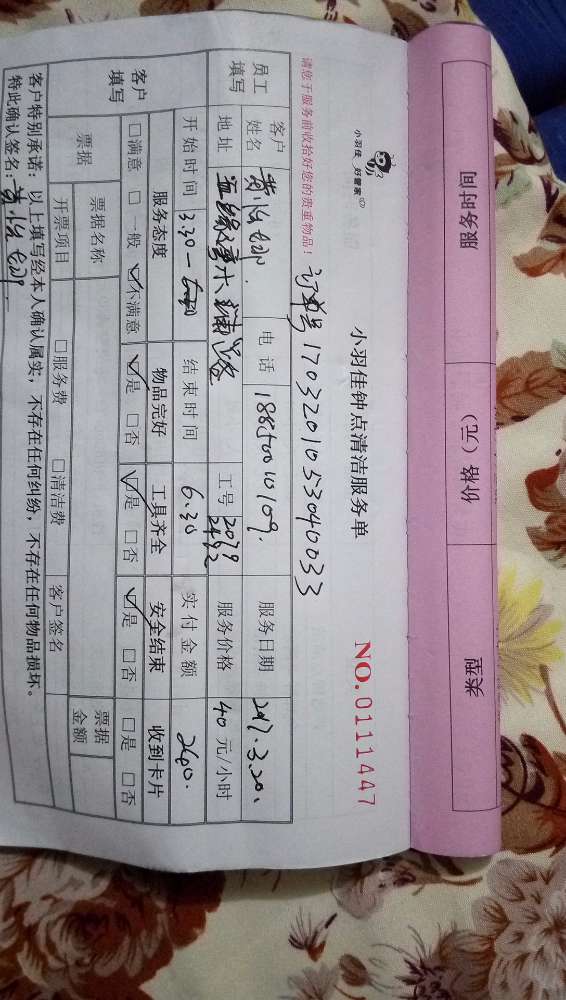 服务时间 价格（元） 类型
小羽佳 好管家
小羽佳钟点清洁服务单
NO.0111447
请您于服务前收拾好您的贵重物品！
订单号1703201053040033
员工填写
客户姓名 电话 服务日期 2017.3.20.
地址 工号 2079 2492 服务价格 40元/小时
客户填写
开始时间 3.30 结束时间 6.30 实付金额 240.
服务态度 物品完好 工具齐全 安全结束 收到卡片
□满意 □一般 ☑不满意 ☑是 □否 ☑是 □否 ☑是 □否 □是 □否
票据 票据名称 票据金额
开票项目 □服务费 □清洁费 客户签名
客户特别承诺：以上填写经本人确认属实，不存在任何纠纷，不存在任何物品损坏。
特此确认签名：